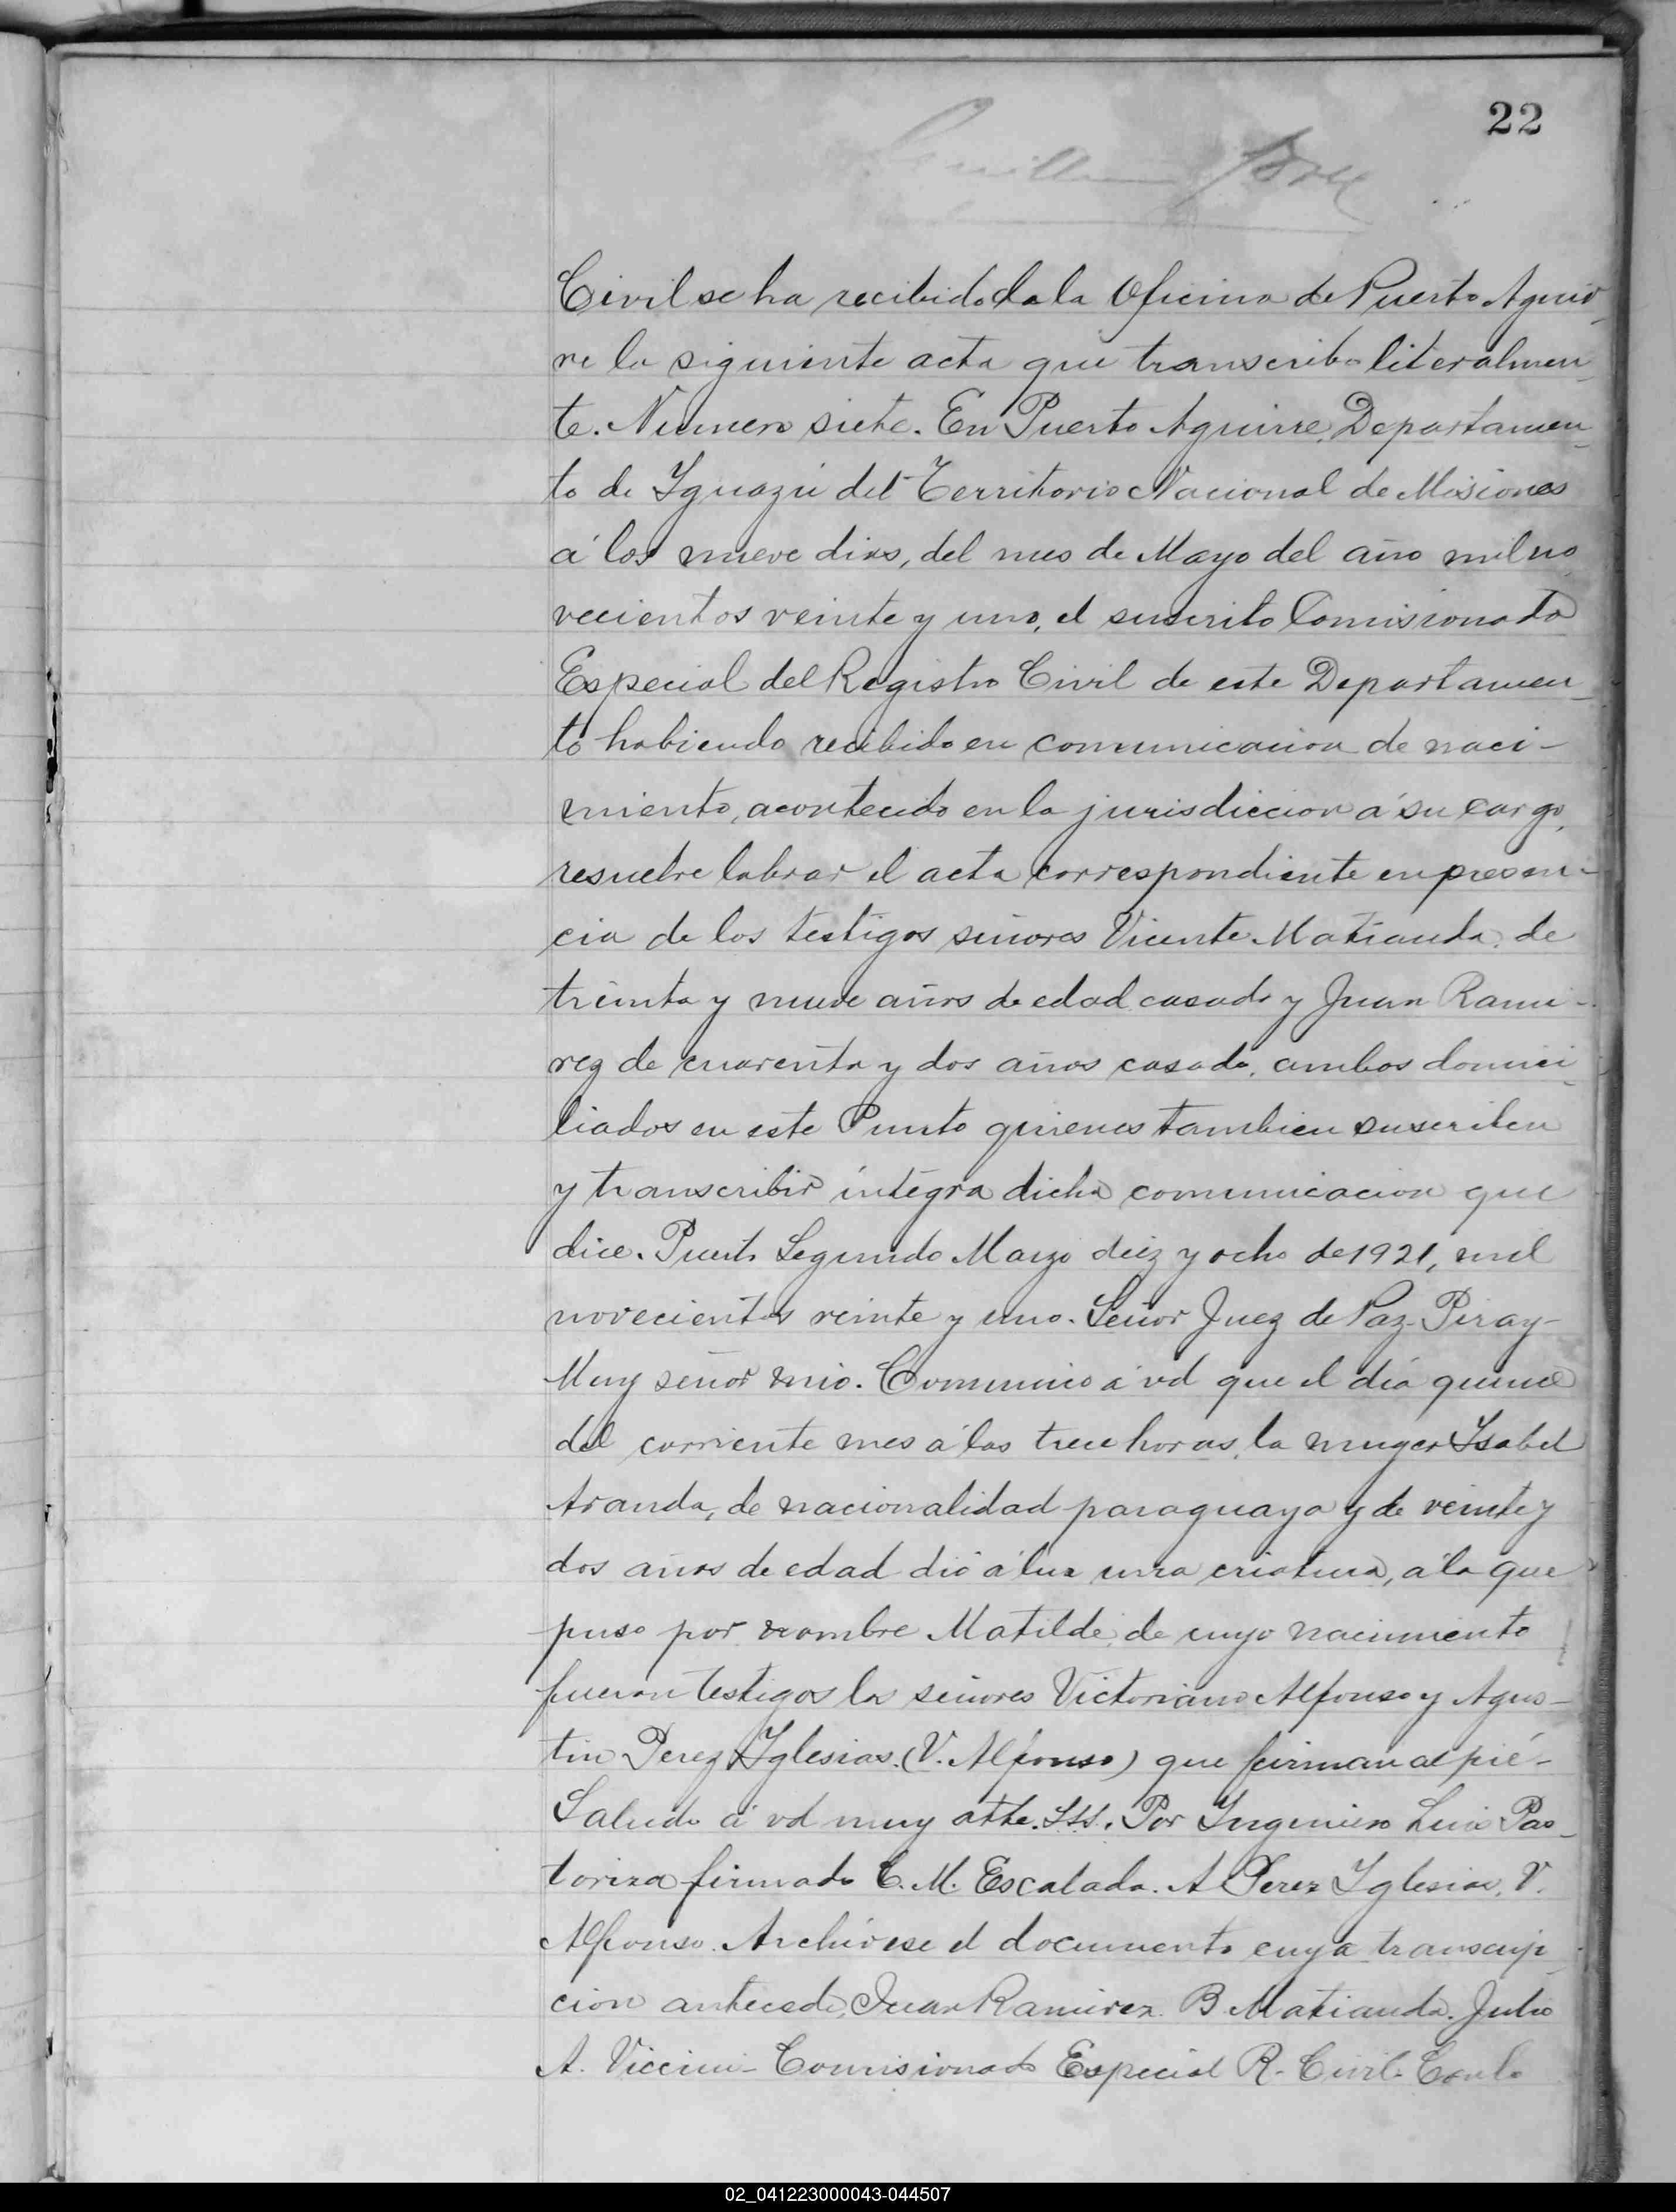 22
Civil se ha recibido de la Oficina de Puerto Aguir
re la siguiente acta que transcribo literalmen
te. Numero siete. En Puerto Aguirre, Departamen
to de Iguazú del Territorio Nacional de Misiones
á los nueve dias, del mes de Mayo del año mil no
vecientos veinte y uno, el suscrito Comisionado
Especial del Registro Civil de este Departamen
to habiendo recibido en comunicacion de naci-
miento, acontecido en la jurisdiccion á su cargo,
resuelve labrar el acta correspondiente en presen-
cia de los testigos señores Vicente Matiauda, de
treinta y nueve años de edad casado y Juan Rami-
rez de cuarenta y dos años casado, ambos domici
liados en este Punto quienes tambien suscriben
y transcribir íntegra dicha comunicacion que
dice. Puerto Segundo Marzo diez y ocho de 1921, mil
novecientos veinte y uno. Señor Juez de Paz-Piray-
Muy señor mio. Comunico á vd que el día quince
del corriente mes á las trece horas, la muger Ysabel
Aranda, de nacionalidad paraguaya y de veinte y
dos años de edad dió á luz una criatura, á la que
puso por nombre Matilde, de cuyo nacimiento
fueron testigos los señores Victoriano Alfonso y Agus-
tin Perez Yglesias. (V. Alfonso) que firman al pié-
Saludo á vd muy atte. SSS. Por Ingeniero Luis Pas-
toriza firmado C. M. Escalada. A Perez Yglesias, V.
Alfonso. Archívese el documento cuya transcrip
cion antecede, Juan Ramirez. B Matiauda. Julio
A. Viccini- Comisionado Especial R. Civil.
02_041223000043-044507